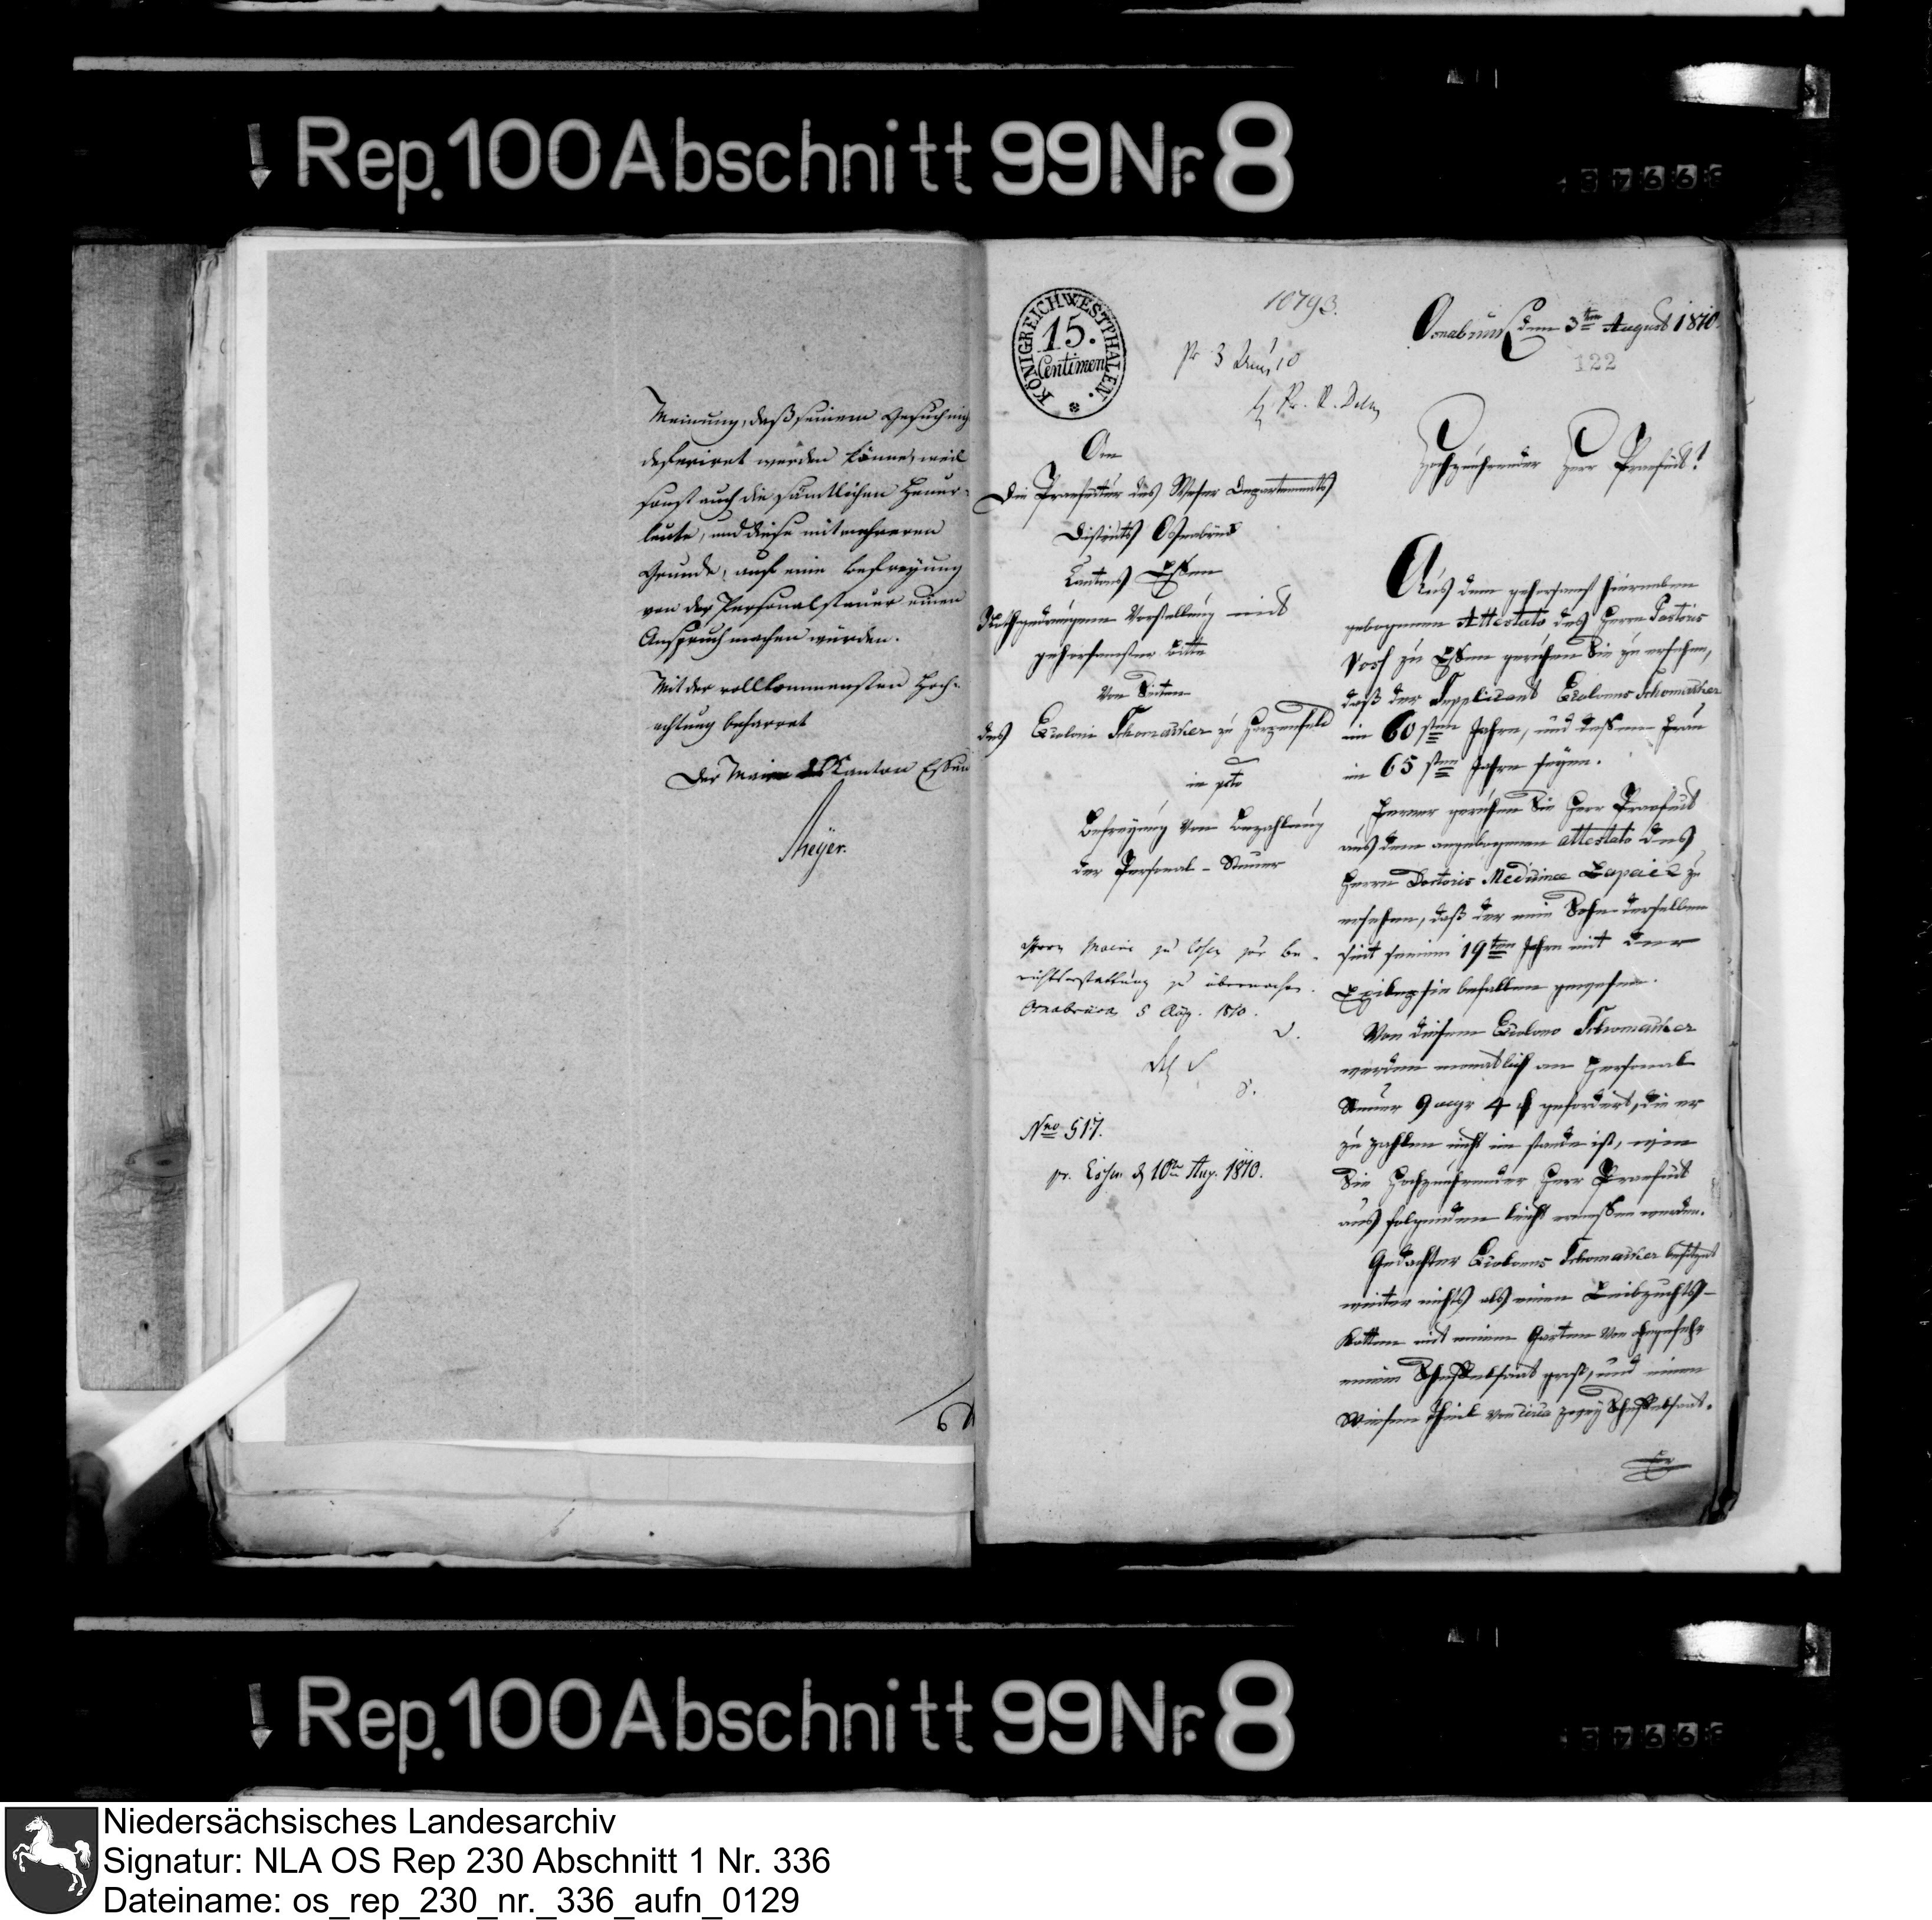 Rep. 100 Abschnitt 99 Nr. 8
Meinung, daß seinem Gesuch nicht
deferiret werden könne, weil
sonst auch die sämtlichen Heuer-
leute, und diese mit mehreren
Grunde, auf eine Befreyung
von der Personalsteuer einen
Anspruch machen würden.
Mit der vollkommensten Hoch-
achtung beharret
Der Maire des Canton Essen
Meyer.
KÖNIGREICH WESTPHALEN.
15.
Centimen
10793.
Osnabrück den 3ten August 1810.
122
An
Die Praefectur des Weser Departements
Districts Osnabrück
Cantons Essen
Nothgedrungene Vorstellung mit
gehorsamster Bitte
Von Seiten
des Coloni Schomacker zu
in pcto
Befreyung von Bezahlung
der Personal-Steuer
Herrn Maire zu Essen zur Be-
richtserstattung zu
Osnabrück 5 Aug. 1810.
Nro 517.
pr. Essen d 10ten Aug. 1810.
Hochzuehrender Herr Praefect!
Aus dem gehorsamst hierneben
gebogenen Attestato des Herrn Pastoris
zu Essen geruhen Sie zu ersehen,
daß der Supplicant Colonus Schomacker
im 60sten Jahre, und dessen Frau
im 65sten Jahre seyen.
Ferner geruhen Sie Herr Praefect
aus dem angebogenen attestato des
Herrn Doctoris Medicinae zu
ersehen, daß der eine Sohn derselben
seit seinem 19ten Jahre mit der
Epilepsie befallen gewesen.
Von diesem Colono Schomacker
werden monatlich an Personal
Steuer 9 mgr 4 d gefordert, die er
zu zahlen nicht im stande ist, wie
Sie Hochzuehrender Herr Praefect
aus folgendem leicht ermessen werden.
Gedachter Colonus Schomacker besitzet
weiter nichts als einen Leibzuchts-
Kotten mit einem Garten von ohngefehr
einem Scheffelsaat groß, und einen
Wiesen Theil von circa zwey Scheffelsaat.
Rep. 100 Abschnitt 99 Nr. 8
Niedersächsisches Landesarchiv
Signatur: NLA OS Rep 230 Abschnitt 1 Nr. 336
Dateiname: os_rep_230_nr._336_aufn_0129